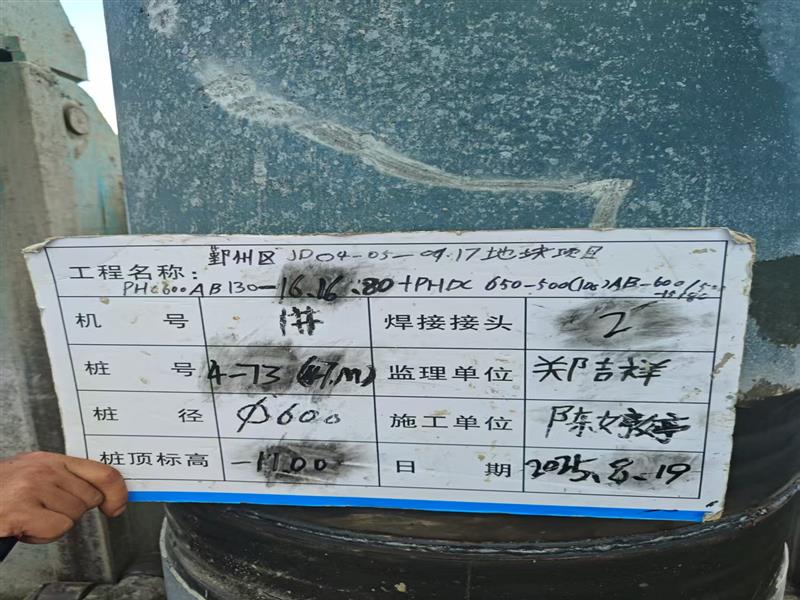 鄞州区 JD04-05-09.17地块项目
工程名称：
PHC600AB130-16.16.80+PHDC 650-500(100)AB-600/500
机 号 1# 焊接接头 2
桩 号 4-73 (47.m) 监理单位 郑吉祥
桩 径 Φ600 施工单位 陈
桩顶标高 -11.00 日 期 2025.8.19